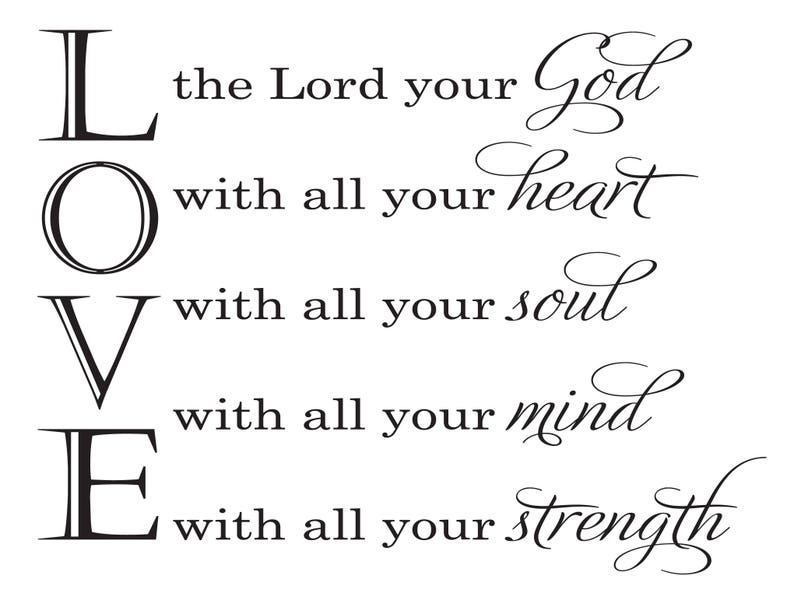 LOVE
the Lord your God
with all your heart
with all your soul
with all your mind
with all your strength